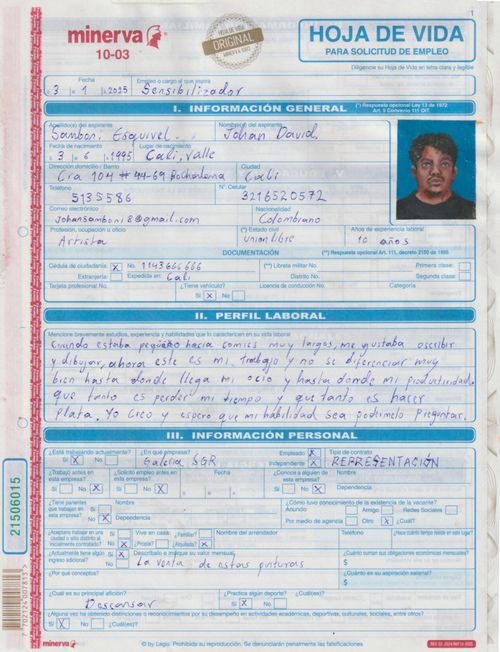 1
minerva
10-03
HOJA DE VIDA
ORIGINAL
MINERVA 1003
HOJA DE VIDA
PARA SOLICITUD DE EMPLEO
Diligencie su Hoja de Vida en letra clara y legible
Fecha
Empleo o cargo al que aspira
3 1 2025 Sensibilizador
I. INFORMACIÓN GENERAL
(*) Respuesta opcional Ley 13 de 1972
Art. 5 Convenio 111 OIT.
Apellido(s) del aspirante
Nombre(s) del aspirante
Samboni Esquivel. Johan David.
Fecha de nacimiento
Lugar de nacimiento
3 6 1995 Cali, valle
Dirección domicilio / Barrio
Ciudad
Cra 104 # 44-69 Bochalema Cali
Teléfono
N°. Celular
5135586 3216520572
Correo electrónico
Nacionalidad
johansamboni8@gmail.com Colombiano
Profesión, ocupación u oficio
(*) Estado civil
Años de experiencia laboral
Artista union libre 10 años
DOCUMENTACIÓN
(**) Respuesta opcional Art. 111, decreto 2150 de 1995
Cédula de ciudadanía: X No. 1143666666
(**) Libreta militar No.
Primera clase:
Extranjería Expedida en: Cali
Distrito No.
Segunda clase:
Tarjeta profesional No.
¿Tiene vehículo?
Licencia de conducción No.
Categoría
Sí X No
II. PERFIL LABORAL
Mencione brevemente estudios, experiencia y habilidades que lo caractericen en su vida laboral
Cuando estaba pequeño hacia comics muy largos, me gustaba escribir
y dibujar, ahora este es mi trabajo y no se diferenciar muy
bien hasta donde llega mi ocio y hasta donde mi productividad,
que tanto es perder mi tiempo y que tanto es hacer
Plata. Yo creo y espero que mi habilidad sea
III. INFORMACIÓN PERSONAL
¿Está trabajando actualmente?
¿En qué empresa?
Empleado X
Tipo de contrato
Sí X No
Galeria SGR
Independiente X
REPRESENTACIÓN
¿Trabajó antes en
esta empresa?
¿Solicitó empleo antes en
esta empresa?
Fecha
¿Conoce a alguien de
esta empresa?
Nombre
Sí No X
Sí No X
Sí No X
Dependencia
¿Tiene parientes
que trabajen en
esta empresa?
Sí
No X
Nombre
Dependencia
¿Cómo tuvo conocimiento de la existencia de la vacante?
Anuncio Amigo Redes Sociales
Por medio de agencia Otro X ¿Cuál?
¿Aceptaría trabajar en una
ciudad o sitio distinto al
inicialmente contratado?
Sí
No X
Vive en casa: ¿Familiar?
¿Propia? ¿Alquilada? X
Nombre del arrendador
Teléfono
¿Hace cuánto tiempo reside en este lugar?
¿Actualmente tiene algún
ingreso adicional?
Sí X
No
Descríbalo e indique su valor mensual
La venta de estas pinturas
¿Cuánto suman sus obligaciones económicas mensuales?
$
¿Por qué conceptos?
¿Cuánto es su aspiración salarial?
$
¿Cuál es su principal afición?
¿Practica algún deporte?
¿Cuál(es)?
Descansar
Sí X No
¿Alguna vez ha obtenido distinciones o reconocimientos por su desempeño en actividades académicas, deportivas, culturales, sociales, entre otros?
Sí X No ¿Cuál(es)?
minerva
© by Legis. Prohibida su reproducción. Se denunciarán penalmente las falsificaciones
21506015